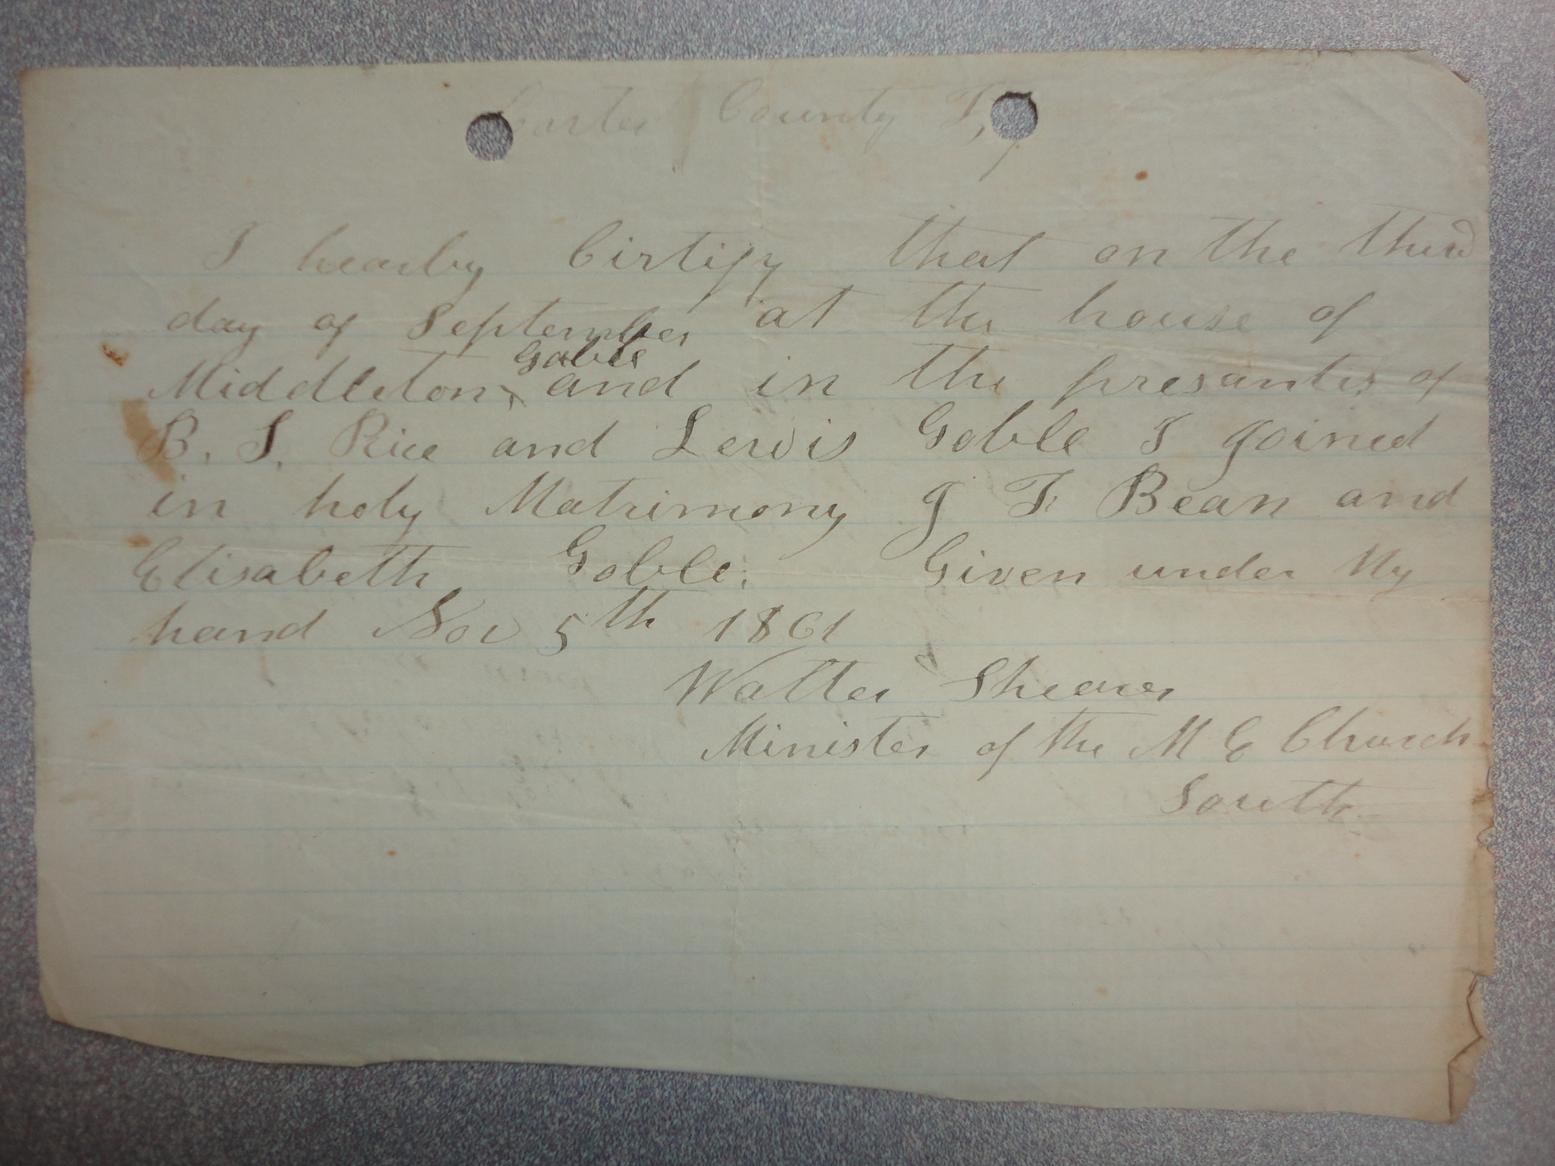 Carter County
I hearby Certify that on the third
day of September at the house of
Goble
Middleton and in the presants of
B. S. Rice and Lewis Goble I joined
in holy Matrimony J F Bean and
Elisabeth Goble. Given under My
hand Nov 5th 1861
Walter Shearer
Minister of the M E Church
South